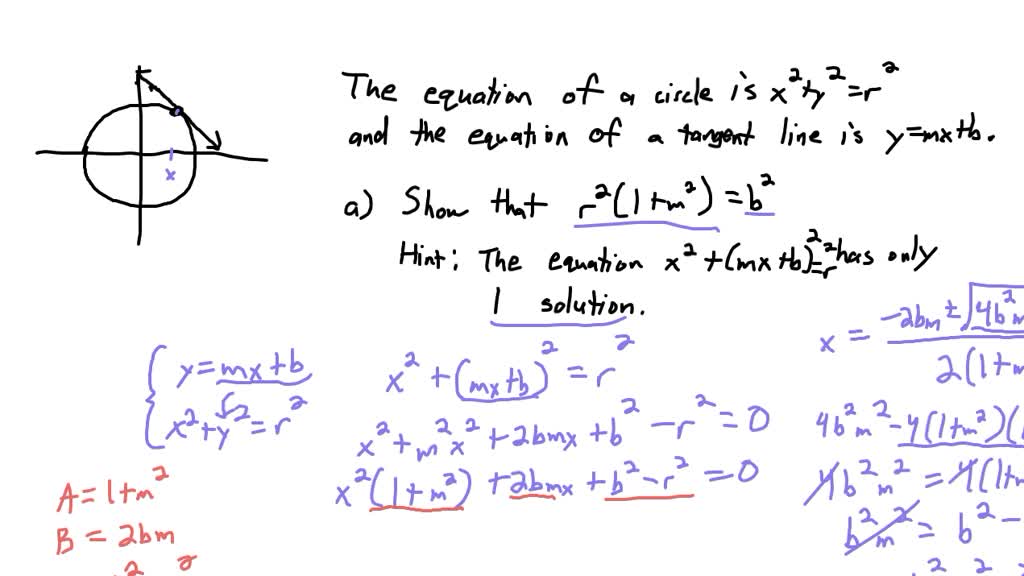 The equation of a circle is x²+y²=r²
and the equation of a tangent line is y=mx+b.
a) Show that r²(1+m²)=b²
Hint: The equation x²+(mx+b)²=r² has only
1 solution.
x
y=mx+b
x²+y²=r²
A=1+m²
B=2bm
x²+(mx+b)²=r²
x²+m²x²+2bmx+b²-r²=0
x²(1+m²)+2bmx+b²-r²=0
x = -2bm±√4b²m
2(1+m
4b²m²-4(1+m²)(
4b²m²=4(1+
b²m²=b²-